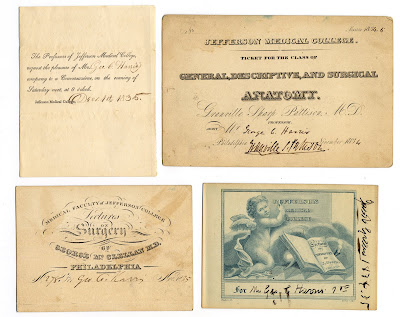 The Professors of Jefferson Medical College,
request the pleasure of Mr. Geo C Harris
company to a Conversazione, on the evening of
Saturday next, at o'clock.
Jefferson Medical College, Dec 12 1835
JEFFERSON MEDICAL COLLEGE.
TICKET FOR THE CLASS OF
GENERAL, DESCRIPTIVE, AND SURGICAL
ANATOMY.
Granville Sharp Pattison, M.D.
PROFESSOR.
Mr George C Harris
Philadelphia November 1834
Granville S Pattison
MEDICAL FACULTY OF JEFFERSON COLLEGE
Lectures
ON
Surgery
BY
GEORGE McCLELLAN M.D.
PHILADELPHIA
Geo C Harris
JEFFERSON
MEDICAL
COLLEGE
For Mr Geo C Harris